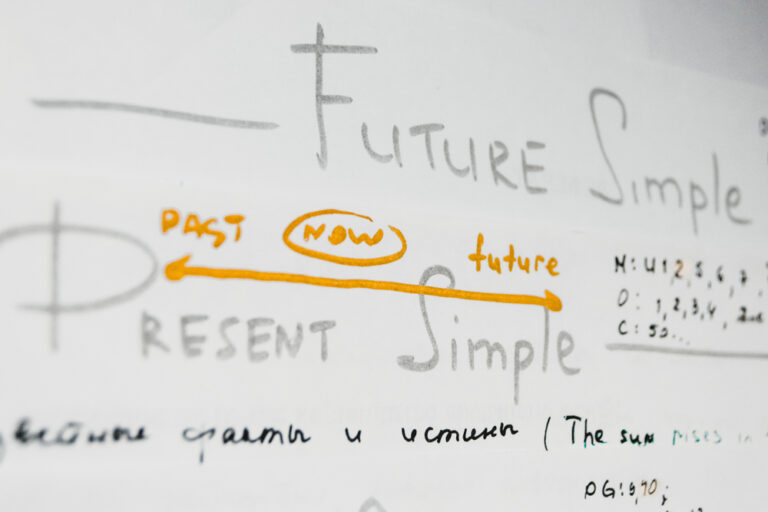 Future Simple
PAST NOW future
Present Simple
N: U1,2,5,6,7
O: 1,2,3,4,
C: 50...
факты и истины (The sun rises in
DG: 9,10;